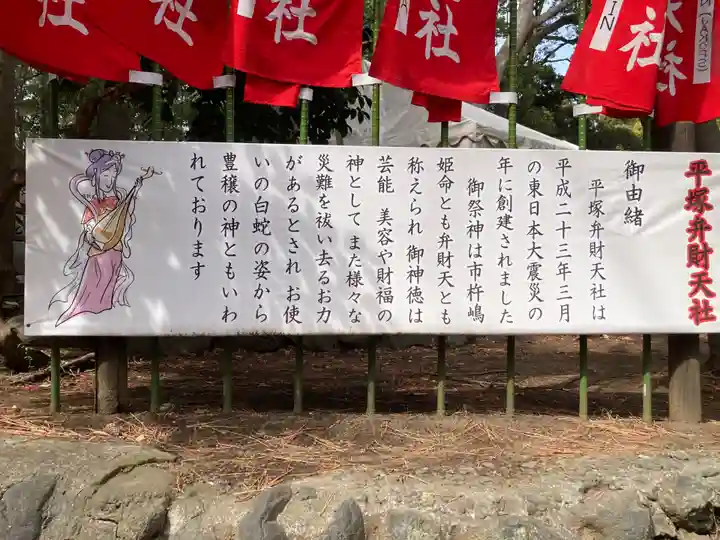 平塚弁財天社
御由緒
平塚弁財天社は
平成二十三年三月
の東日本大震災の
年に創建されました
御祭神は市杵嶋
姫命とも弁財天とも
称えられ 御神徳は
芸能 美容や財福の
神として また様々な
災難を祓い去るお力
があるとされ お使
いの白蛇の姿から
豊穣の神ともいわ
れております
社
社
社
社